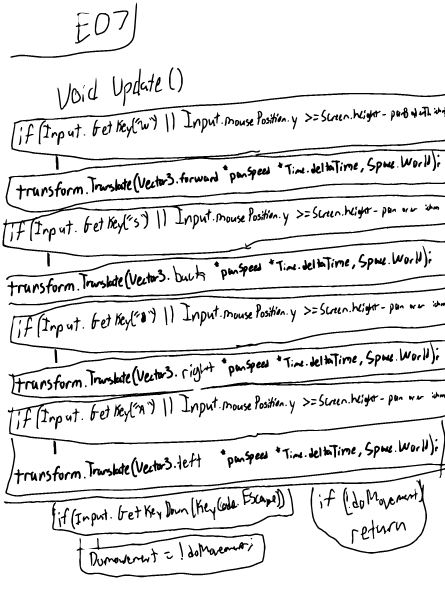 E07
Void Update()
if (Input. GetKey("w") || Input.mousePosition.y >=Screen.height -
transform.Translate(Vector3.forward *panSpeed *Time.deltaTime, Space.World);
if (Input. GetKey("s") || Input.mousePosition.y >=Screen.height - pan
transform.Translate(Vector3. back *panSpeed *Time.deltaTime, Space.World);
if (Input. GetKey(" ") || Input.mousePosition.y >=Screen.height - pan
transform.Translate(Vector3. right *panSpeed *Time.deltaTime, Space.World);
if (Input. GetKey(" ") || Input.mousePosition.y >=Screen.height - pan
transform.Translate(Vector3.left *panSpeed *Time.deltaTime, Space.World);
if(Input. GetKeyDown(KeyCode.Escape))
Domovement = !doMovement;
if (!doMovement)
return